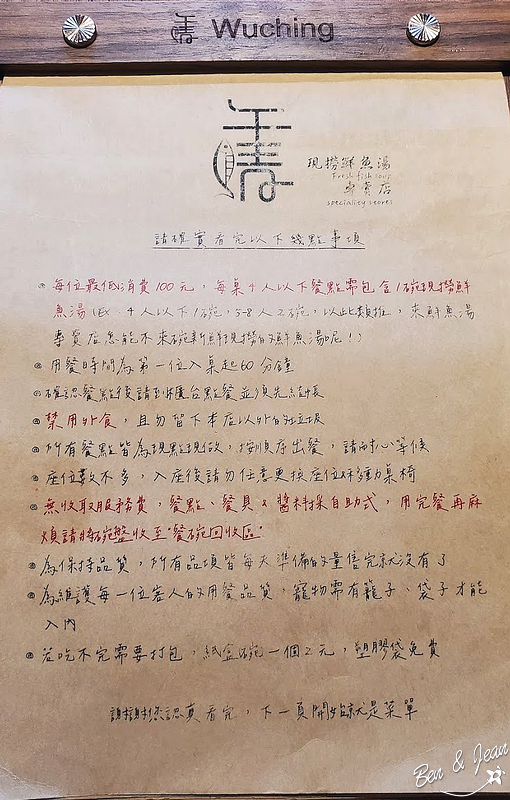 Wuching
現撈鮮魚湯
Fresh fish soup
專賣店
speciality stores
請確實看完以下幾點事項
每位最低消費100元，每桌4人以下餐點需包含1碗現撈鮮
魚湯（EX：4人以下1碗，5-8人2碗，以此類推，來鮮魚湯
專賣店怎能不來碗新鮮現撈的鮮魚湯呢！）
用餐時間為第一位入桌起60分鐘
確認餐點後請到櫃台點餐並須先結帳
禁用外食，且勿留下本店以外的垃圾
所有餐點皆為現點現做，按順序出餐，請耐心等候
座位數不多，入座後請勿任意更換座位&移動桌椅
無收取服務費，餐點、餐具&醬料採自助式，用完餐再麻
煩請將碗盤收至"餐碗回收區"
為保持品質，所有品項皆每天準備的量售完就沒有了
為維護每一位客人的用餐品質，寵物需有籠子、袋子才能
入內
若吃不完需要打包，紙盒&碗一個2元，塑膠袋免費
謝謝您認真看完，下一頁開始就是菜單
Ben & Jean